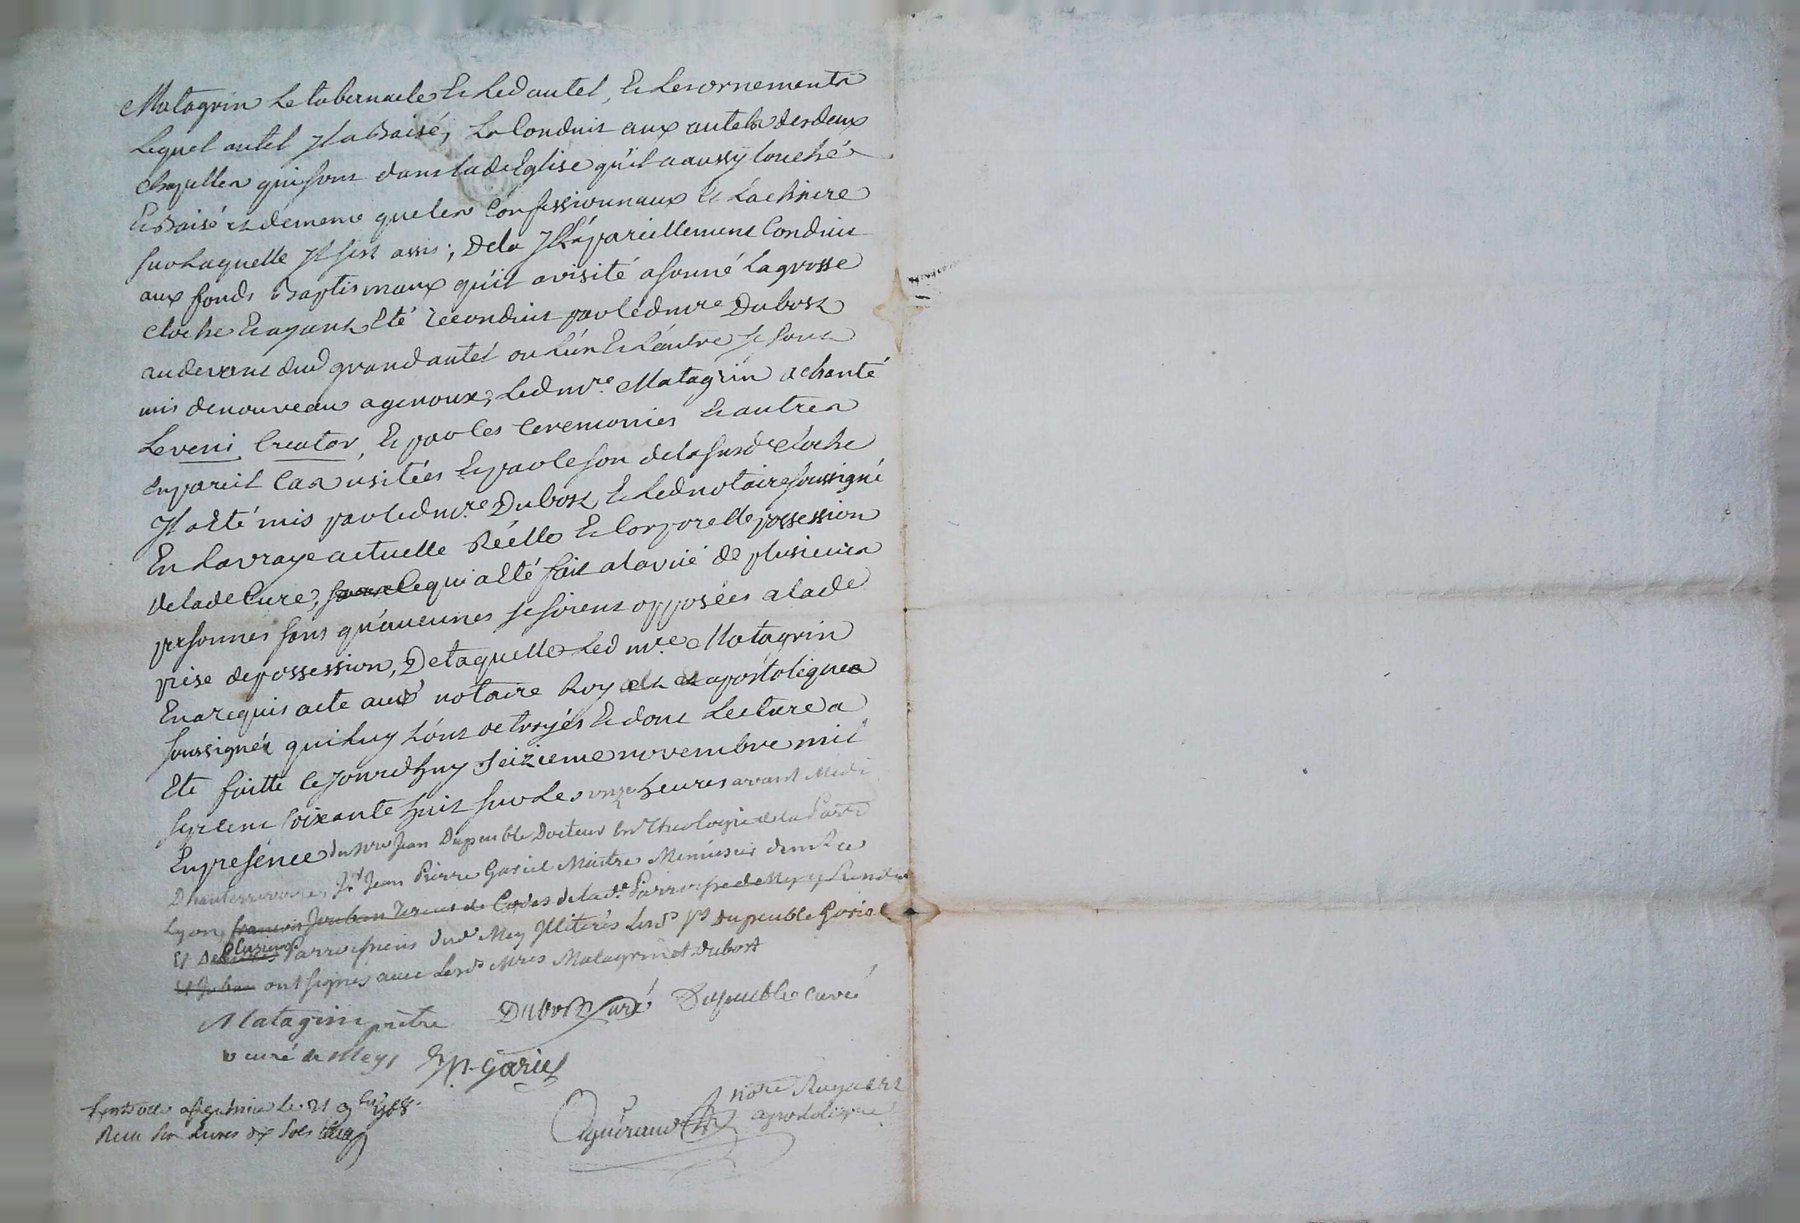 Matagrin Le tabernacle Et Led autel, Et Les ornements
Lequel autel Il a Baisé, La Conduit aux autels des deux
chapelles qui sont dans lade Eglise qu'il a aussy touchés
Et Baisés de meme que les Confessionnaux Et La chaire
sur Laquelle Il s'est assis; De la Il a pareillement Conduit
aux fonds Baptismaux qu'il a visité a sonné La grosse
cloche Et ayant Eté reconduit par led mre Dubost
au devant dud grand autel ou L'un Et L'autre se sont
mis de nouveau a genoux, Led mre. Matagrin a chanté
Le veni Creator, Et par les Ceremonies Et autres
En pareil Cas usitées Et par le son de la susde cloche
Il a Eté mis par led mre Dubost Et Led notaire soussigné
En La vraye actuelle Réelle Et Corporelle possession
de lade Cure, ce qui a Eté fait a la vüe de plusieurs
personnes sans qu'aucunes se soient opposées a lade
prise de possession, De laquelle Led mre. Matagrin
En a requis acte aux notaire Roy et apostolique
soussignés qui Luy L'ont octroyés Et dont Lecture a
Eté faitte Ce Jourdhuy seizieme novembre mil
sept cent soixante huit sur Les onze heures avant Midi
En presence du sr Jean Dupeuble Docteur En Theologie de la Parr
Dhauterivoire, Sr Jean Pierre Gariel Maitre Menuisier demt a
Lyon de lade. Parroisse de Meys
Et De plusieurs Parroissiens dud Mey Illiterés Lesd srs Dupeuble Gariel
ont signés avec Lesds Mres Matagrin et Dubost
Matagrin prêtre Dubost Curé Dupeuble curé
curé de Meys J p. Gariel
Controllé a le 21 9bre 1768.
Reçu livres dix sols
Aguiraud notre Royal et
apostolique